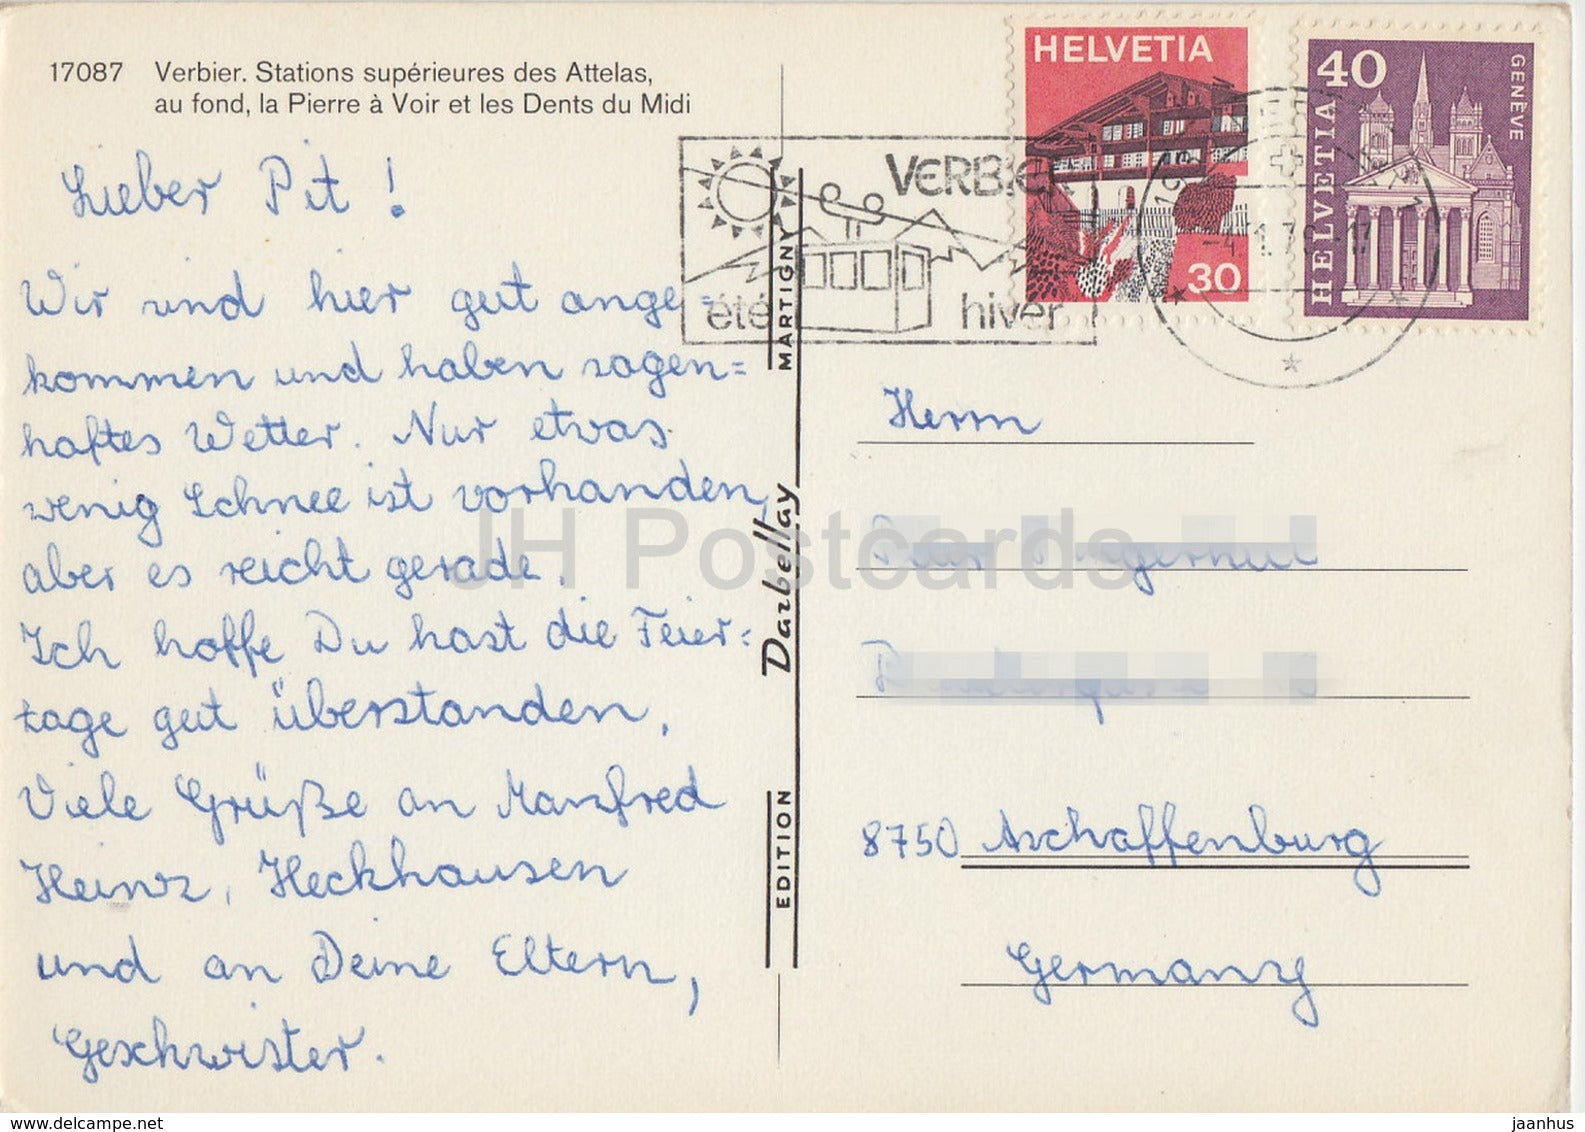 17087 Verbier. Stations supérieures des Attelas,
au fond, la Pierre à Voir et les Dents du Midi
Lieber Pit !
Wir sind hier gut ange=
kommen und haben sagen=
haftes Wetter. Nur etwas
wenig Schnee ist vorhanden,
aber es reicht gerade.
Ich hoffe Du hast die Feier=
tage gut überstanden.
Viele Grüße an Manfred
Heinz, Heckhausen
und an Deine Eltern,
Geschwister.
EDITION Darbellay MARTIGNY
VERBIER
été hiver
HELVETIA
30
40
GENÈVE
HELVETIA
1936
Herrn
8750 Aschaffenburg
Germany
JH Postcards
delcampe.net
jaanhus